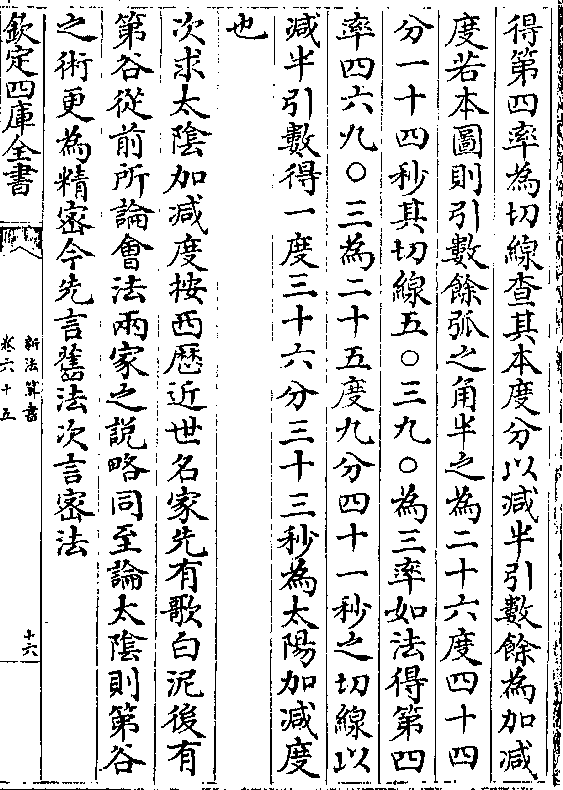 得第四率為切線查其本度分以减半引數餘為加减
度若本圖則引數餘弧之角半之為二十六度四十四
分一十四秒其切線五〇三九〇為三率如法得第四
率四六九〇三為二十五度九分四十一秒之切線以
减半引數得一度三十六分三十三秒為太陽加减度
也
次求太陰加减度按西厯近世名家先有歌白泥後有
第谷從前所論會法兩家之説略同至論太陰則第谷
之術更為精密今先言舊法次言密法
欽定四庫全書
新法算書
卷六十五
十六